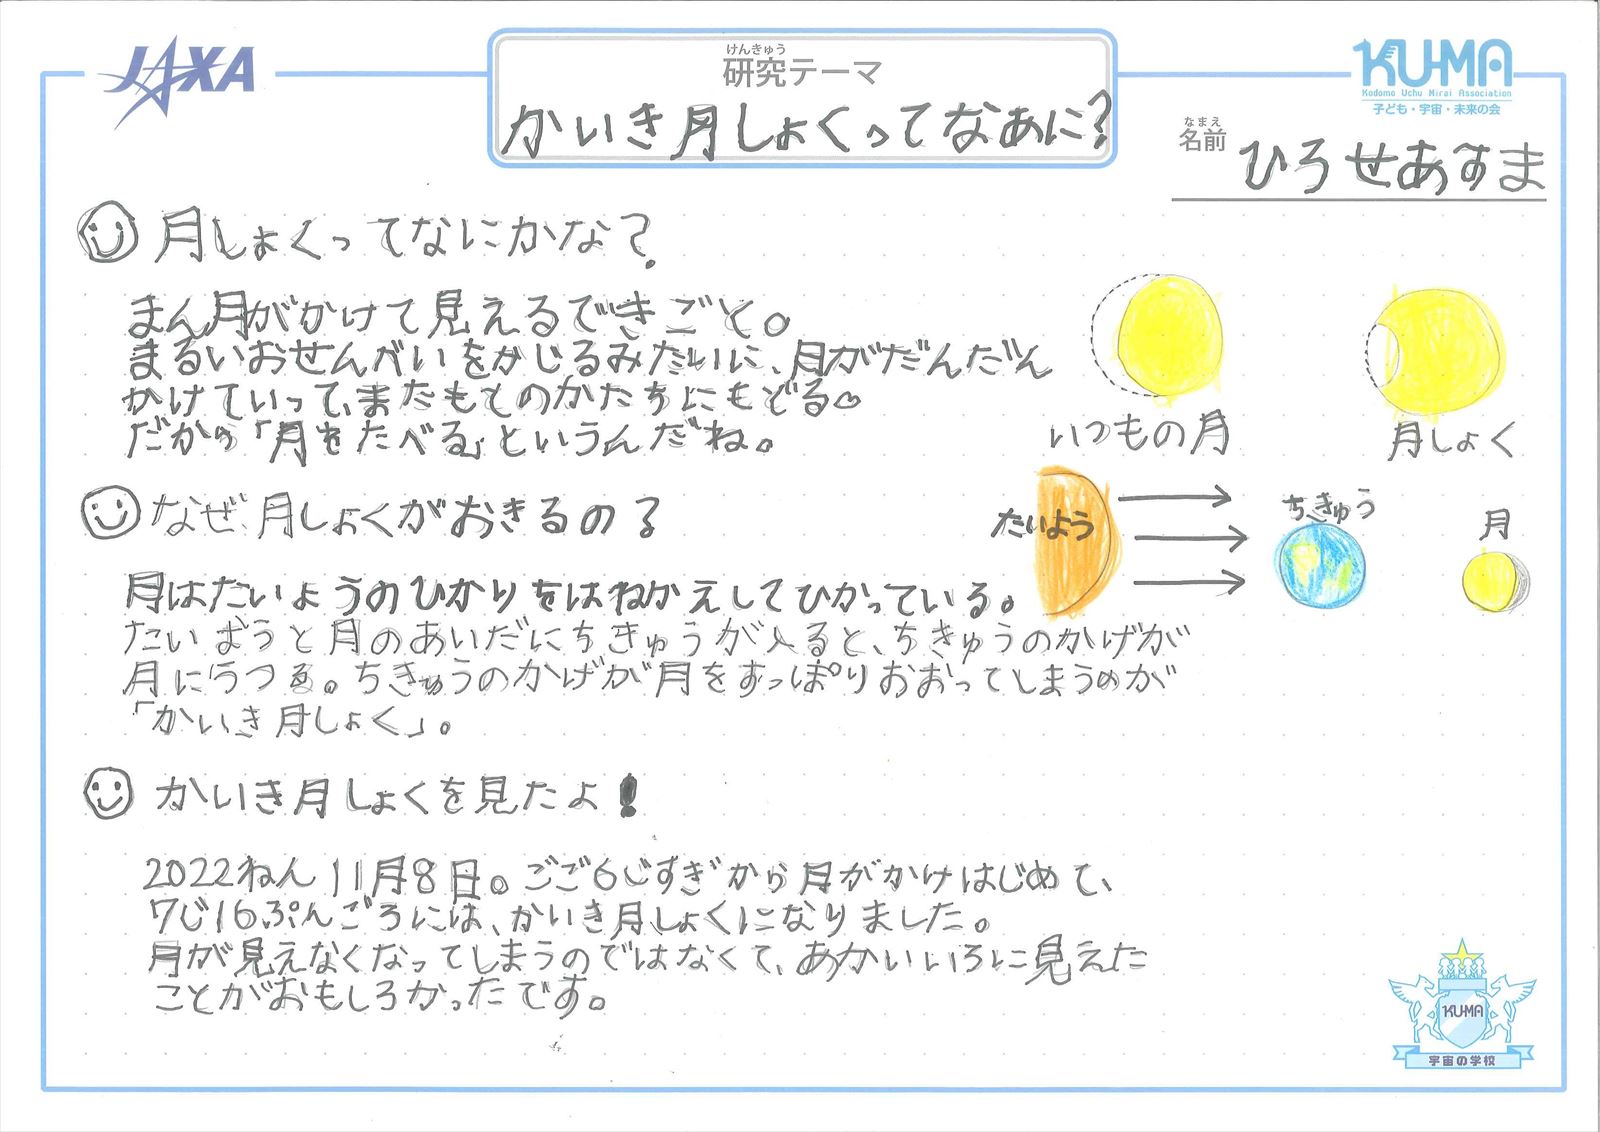 JAXA
けんきゅう
研究テーマ
かいき月しょくってなあに?
KU-MA
Kodomo Uchu Mirai Association
子ども・宇宙・未来の会
なまえ
名前
ひろせあすま
月しょくってなにかな?
まん月がかけて見えるできごと。
まるいおせんべいをかじるみたいに、月がだんだん
かけていって、またもとのかたちにもどる。
だから「月をたべる」というんだね。
いつもの月
月しょく
なぜ月しょくがおきるの?
たいよう
ちきゅう
月
月はたいようのひかりをはねかえしてひかっている。
たいようと月のあいだにちきゅうが入ると、ちきゅうのかげが
月にうつる。ちきゅうのかげが月をすっぽりおおってしまうのが
「かいき月しょく」。
かいき月しょくを見たよ!
2022ねん11月8日。ごご6じすぎから月がかけはじめて、
7じ16ぷんごろには、かいき月しょくになりました。
月が見えなくなってしまうのではなくて、あかいいろに見えた
ことがおもしろかったです。
KUMA
宇宙の学校